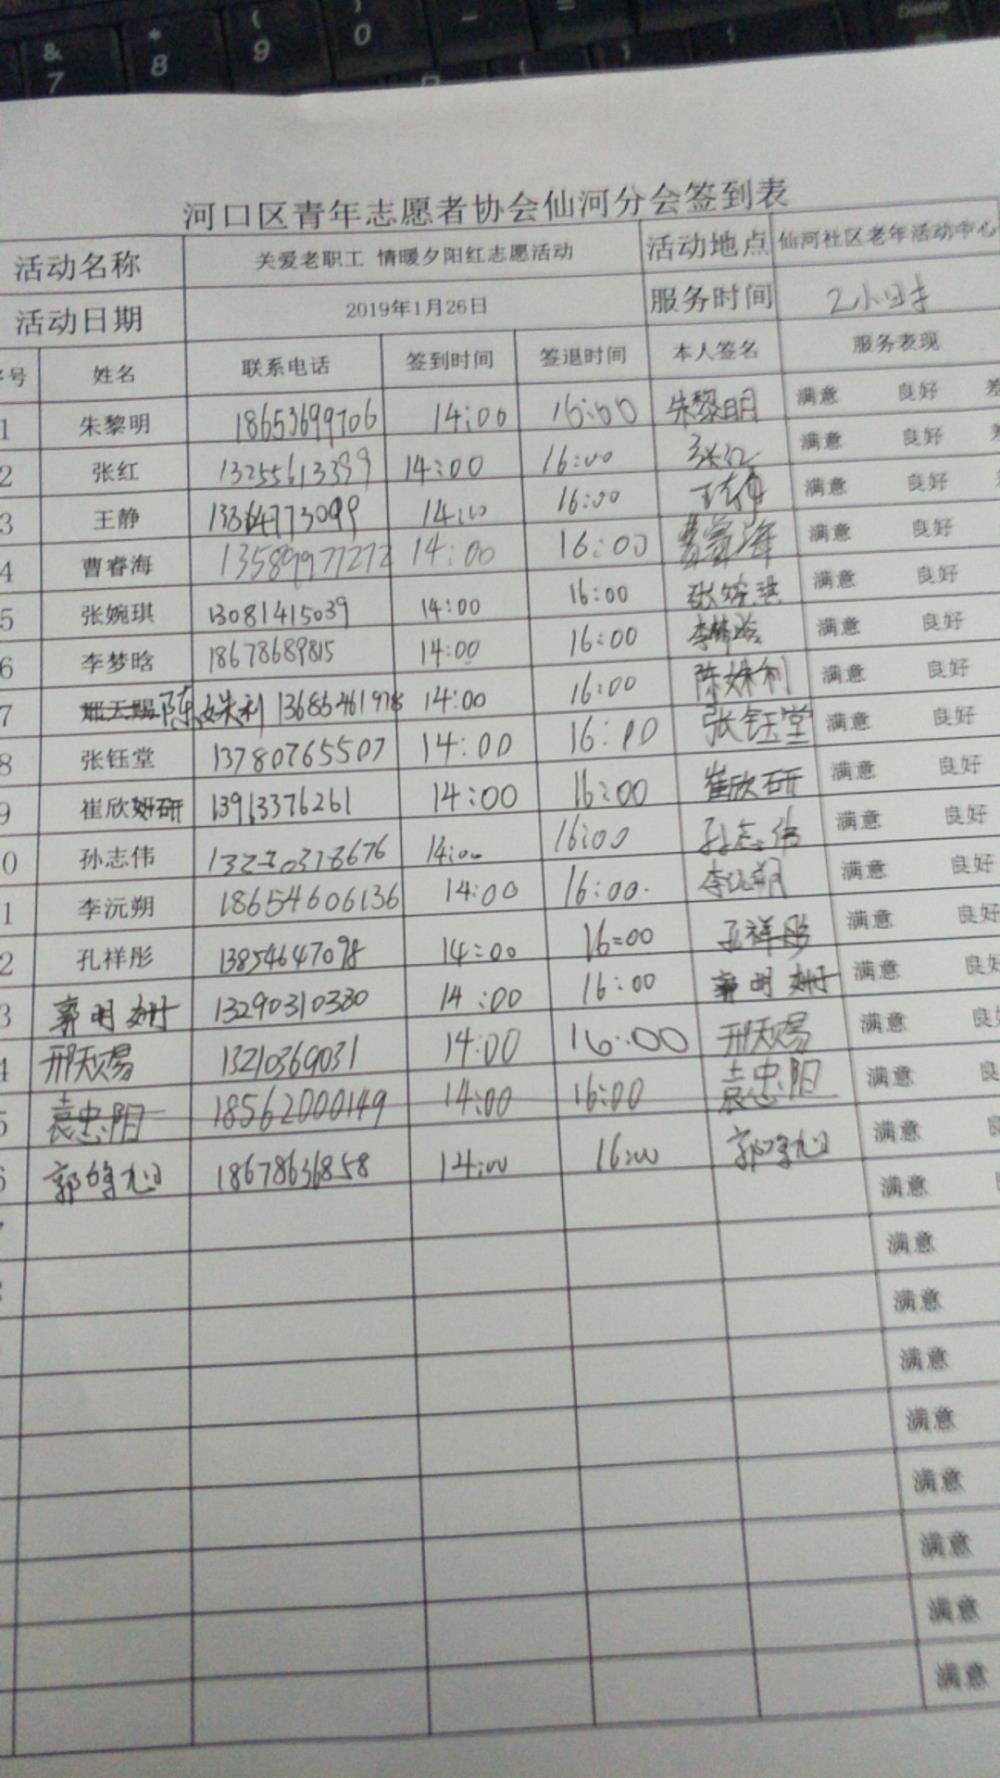 & * ( )
7 8 9 0 - =
Delete
河口区青年志愿者协会仙河分会签到表
活动名称 关爱老职工 情暖夕阳红志愿活动 活动地点 仙河社区老年活动中心
活动日期 2019年1月26日 服务时间 2小时
号 姓名 联系电话 签到时间 签退时间 本人签名 服务表现
1 朱黎明 18653699706 14:00 16:00 朱黎明 满意 良好 差
2 张红 13255613399 14:00 16:00 张红 满意 良好 差
3 王静 13364773099 14:00 16:00 王静 满意 良好
4 曹睿海 13589977272 14:00 16:00 曹睿海 满意 良好
5 张婉琪 13081415039 14:00 16:00 张婉琪 满意 良好
6 李梦晗 18678689815 14:00 16:00 李梦晗 满意 良好
7 陈姝利 13685461978 14:00 16:00 陈姝利 满意 良好
8 张钰堂 13780765507 14:00 16:00 张钰堂 满意 良好
9 崔欣研 13913376261 14:00 16:00 崔欣研 满意 良好
0 孙志伟 14:00 16:00 孙志伟 满意 良好
1 李沅朔 18654606136 14:00 16:00 李沅朔 满意 良好
2 孔祥彤 13854647098 14:00 16:00 孔祥彤 满意 良好
3 郭明姗 13290310380 14:00 16:00 郭明姗 满意 良好
4 邢天赐 13210369031 14:00 16:00 邢天赐 满意 良
5 袁忠阳 18562000149 14:00 16:00 袁忠阳 满意 良
6 18678636858 14:00 16:00 满意 良
满意
满意
满意
满意
满意
满意
满意
满意
满意